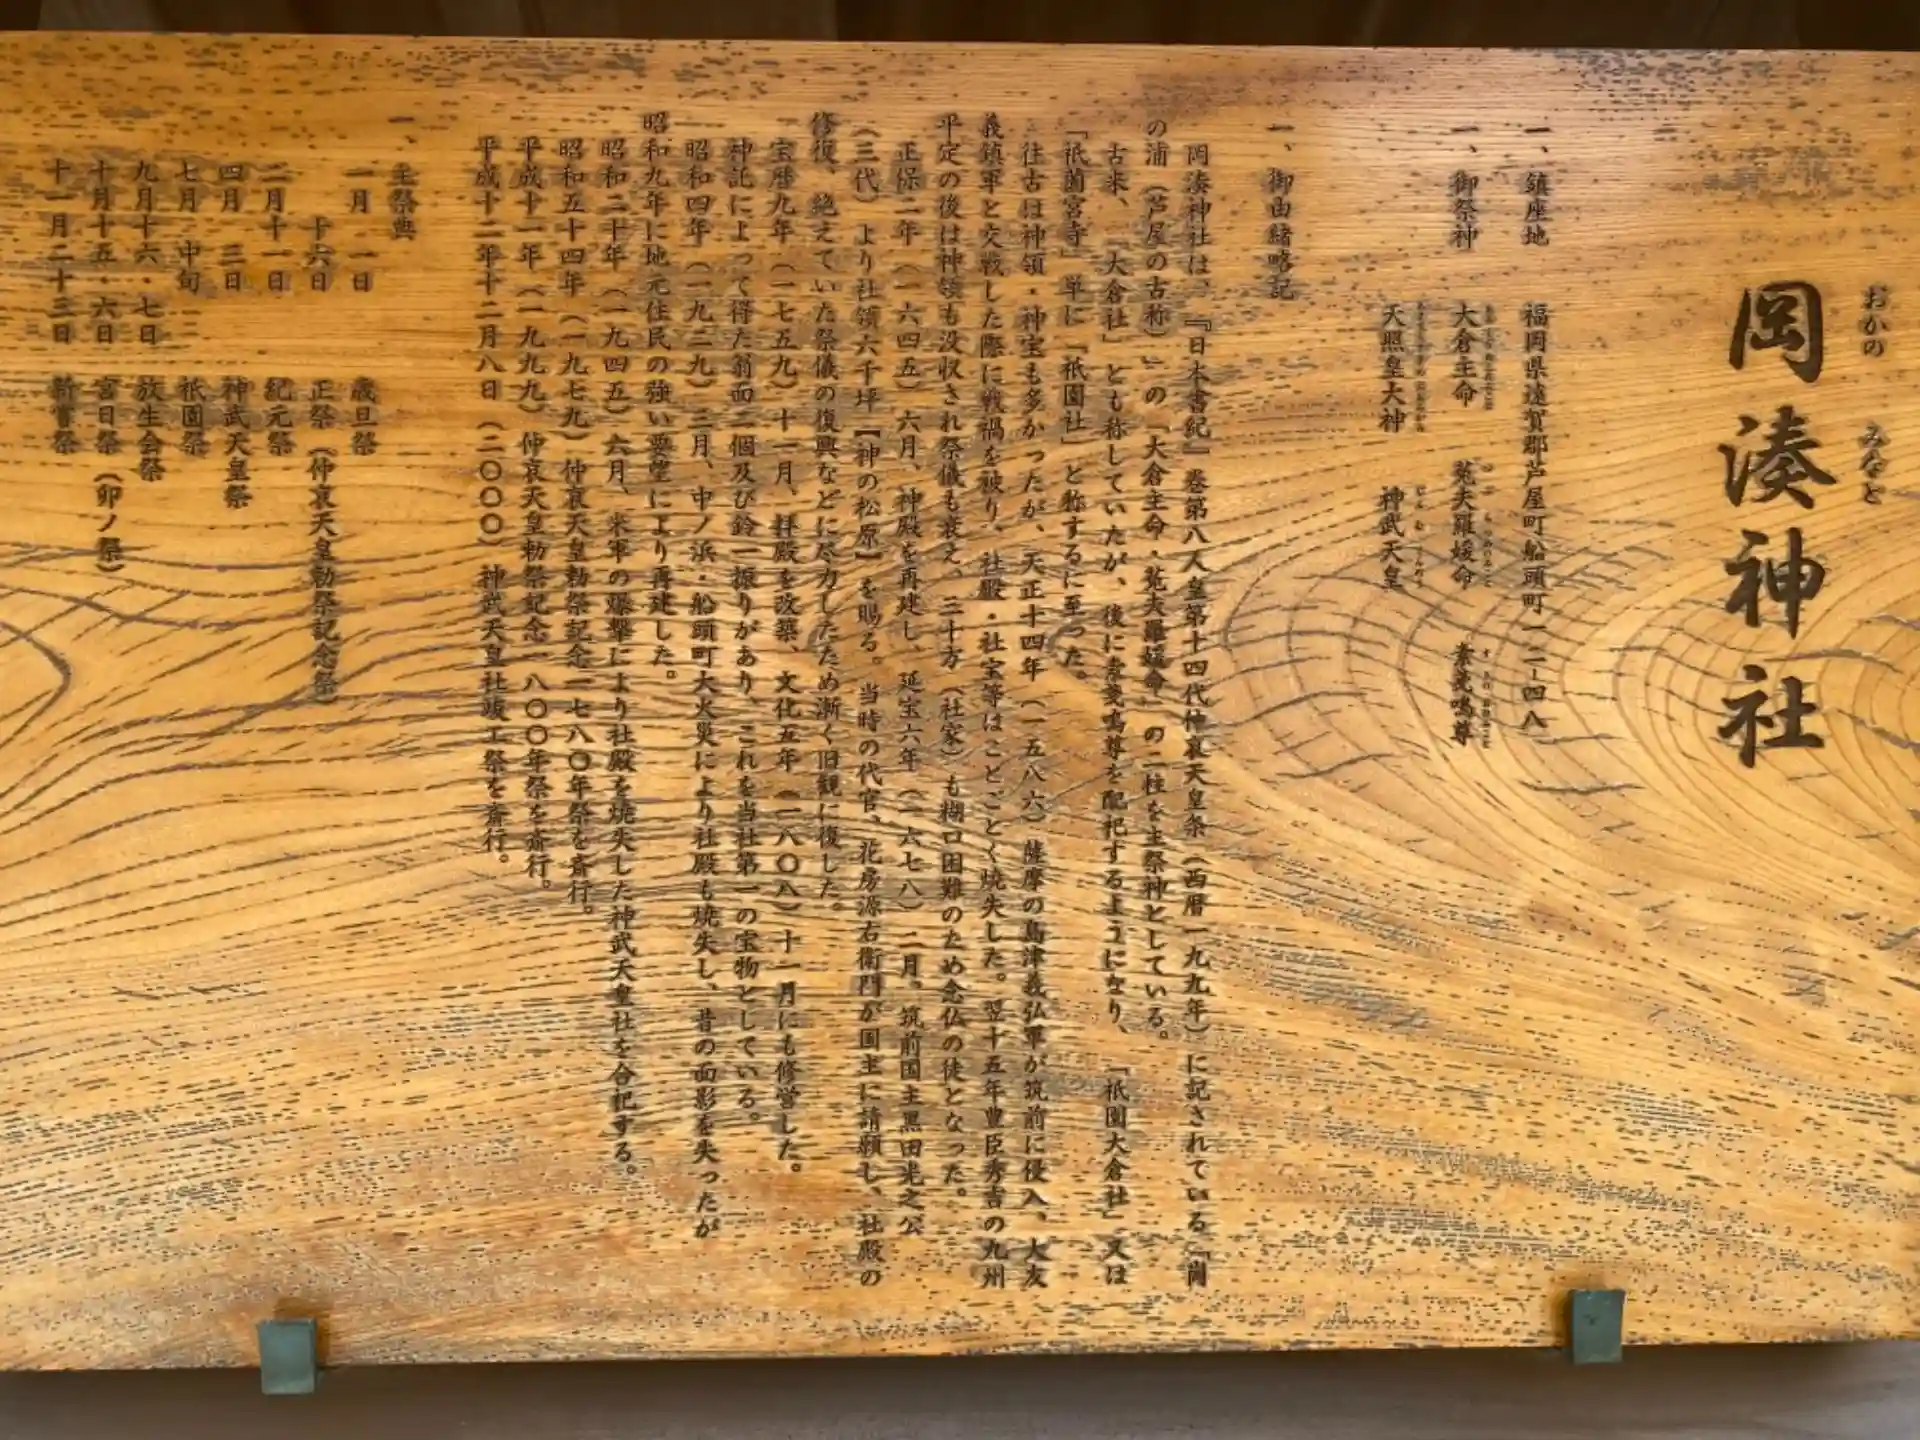 おかの みなと
岡湊神社
一、鎮座地 福岡県遠賀郡芦屋町船頭町一二−四八
一、御祭神 大倉主命 菟夫羅媛命 素戔嗚尊
天照皇大神 神武天皇
一、御由緒略記
岡湊神社は、『日本書紀』巻第八人皇第十四代仲哀天皇条（西暦一九九年）に記されている「崗
の浦（芦屋の古称）」の「大倉主命・菟夫羅媛命」の二柱を主祭神としている。
古来、「大倉社」とも称していたが、後に素戔嗚尊を配祀するようになり、「祇園大倉社」又は
「祇園宮寺」単に「祇園社」と称するに至った。
往古は神領・神宝も多かったが、天正十四年（一五八六）薩摩の島津義弘軍が筑前に侵入、大友
義鎮軍と交戦した際に戦禍を被り、社殿・社宝等はことごとく焼失した。翌十五年豊臣秀吉の九州
平定の後は神領も没収され祭儀も衰え、三十方（社家）も糊口困難のため念仏の徒となった。
正保二年（一六四五）六月、神殿を再建し、延宝六年（一六七八）二月。筑前国主黒田光之公
（三代）より社領六千坪【神の松原】を賜る。当時の代官、花房源右衛門が国主に請願し、社殿の
修復、絶えていた祭儀の復興などに尽力したため漸く旧観に復した。
宝暦九年（一七五九）十一月、拝殿を改築、文化五年（一八〇八）十一月にも修営した。
神託によって得た翁面二個及び鈴一振りがあり、これを当社第一の宝物としている。
昭和四年（一九二九）三月、中ノ浜・船頭町大火災により社殿も焼失し、昔の面影を失ったが
昭和九年に地元住民の強い要望により再建した。
昭和二十年（一九四五）六月、米軍の爆撃により社殿を焼失した神武天皇社を合祀する。
昭和五十四年（一九七九）仲哀天皇勅祭記念一七八〇年祭を斎行。
平成十一年（一九九九）仲哀天皇勅祭記念一八〇〇年祭を斎行。
平成十二年十二月八日（二〇〇〇）神武天皇社竣工祭を斎行。
一、主祭典
一月 一日 歳旦祭
十六日 正祭（仲哀天皇勅祭記念祭）
二月十一日 紀元祭
四月 三日 神武天皇祭
七月 中旬 祇園祭
九月十六・七日 放生会祭
十月十五・六日 宮日祭（卯ノ祭）
十一月二十三日 新嘗祭